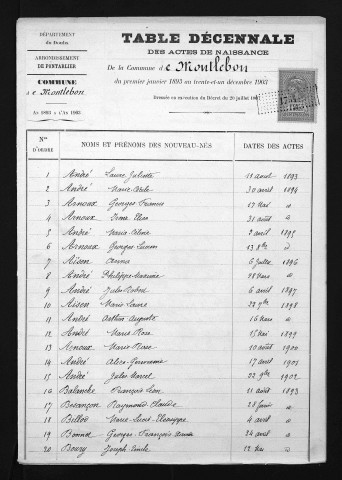 DÉPARTEMENT
du Doubs
ARRONDISSEMENT
DE PONTARLIER
COMMUNE
de Montlebon
An 1893 à l'An 1903
TABLE DÉCENNALE
DES ACTES DE NAISSANCE
De la Commune de Montlebon
du premier janvier 1893 au trente-et-un décembre 1903
Dressée en exécution du Décret du 20 juillet
Nos D'ORDRE NOMS ET PRÉNOMS DES NOUVEAU-NÉS DATES DES ACTES
1 André Laure Juliette 11 avril 1893
2 André Marie 30 avril 1894
3 Arnoux Georges 17 Mai
4 Arnoux 31 août
5 André Maria Céline 2 avril 1895
6 Arnoux Georges Lucien 13 8bre
7 Aïson Anna 6 juillet 1896
8 André Philippe 28 Mars
9 André Jules 6 avril 1897
10 Aïson Marie Laure 22 9bre 1898
11 André Arthur Auguste 16 Mars
12 André Marie Rose 15 Mai 1899
13 Arnoux Marie 10 août 1900
14 André Alice 17 avril 1901
15 André Jules Marcel 22 9bre 1902
16 Balanche François Léon 11 août 1893
17 Besançon Raymond Claude 28 Juin
18 Billod Marie 4 avril
19 Bonnet Georges François 24 avril
20 Boury Joseph Emile 12 Mai